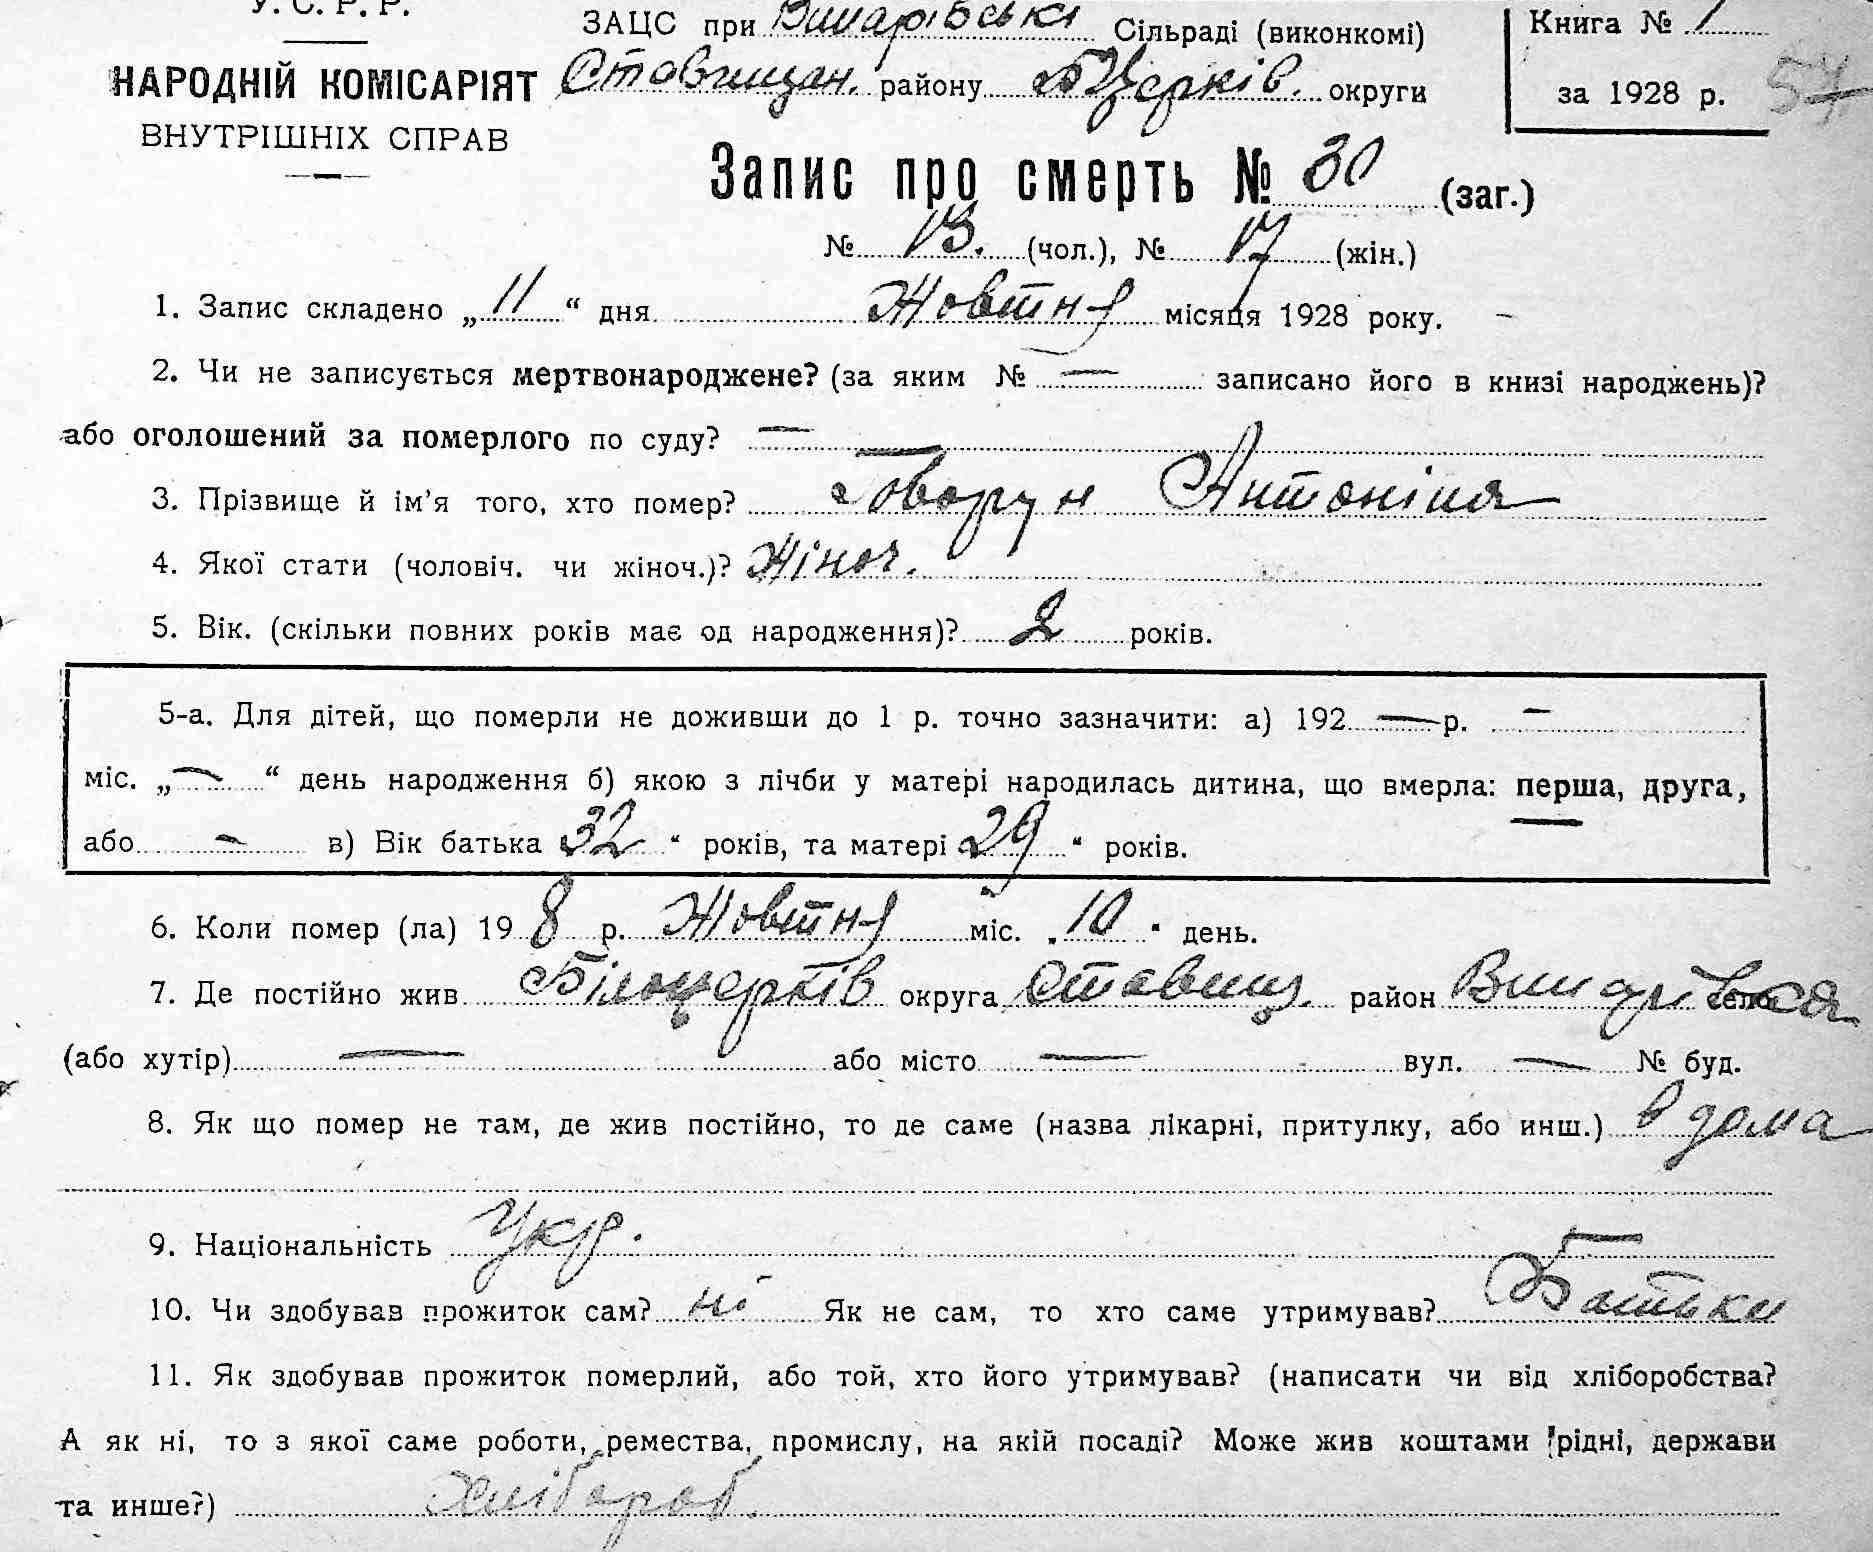 У. С. Р. Р.
НАРОДНІЙ КОМІСАРІЯТ
ВНУТРІШНІХ СПРАВ
ЗАЦС при Винарівські Сільраді (виконкомі)
Ставищан. району БЦерків. округи
Книга № 1
за 1928 р.
57
Запис про смерть № 30 (заг.)
№ 13. (чол.), № 17 (жін.)
1. Запис складено „ 11 “ дня Жовтня місяця 1928 року.
2. Чи не записується мертвонароджене? (за яким № — записано його в книзі народжень)?
або оголошений за померлого по суду? —
3. Прізвище й ім’я того, хто помер? Говорун Антоніна
4. Якої стати (чоловіч. чи жіноч.)? Жіноч.
5. Вік. (скільки повних років має од народження)? 2 років.
5-а. Для дітей, що померли не доживши до 1 р. точно зазначити: а) 192 — р. —
міс. „ — “ день народження б) якою з лічби у матері народилась дитина, що вмерла: перша, друга,
або — в) Вік батька 32 “ років, та матері 29 “ років.
6. Коли помер (ла) 19 8 р. Жовтня міс. „ 10 “ день.
7. Де постійно жив Білоцерків округа Ставищ. район Винарівка село
(або хутір) — або місто — вул. — № буд.
8. Як що помер не там, де жив постійно, то де саме (назва лікарні, притулку, або инш.) в дома
9. Національність Укр.
10. Чи здобував прожиток сам? ні Як не сам, то хто саме утримував? Батьки
11. Як здобував прожиток померлий, або той, хто його утримував? (написати чи від хліборобства?
А як ні, то з якої саме роботи, ремества, промислу, на якій посаді? Може жив коштами рідні, держави
та инше?) Хлібороб.